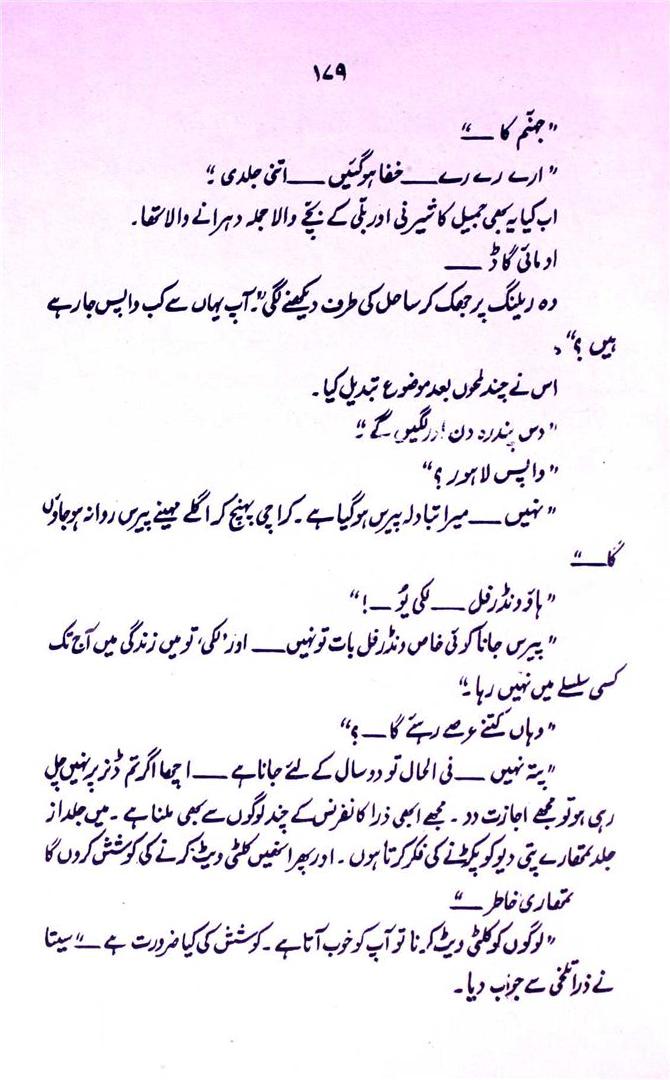 ۱۷۹
"جہنّم کا ـــ"
"ارے رے رے ـــ خفا ہوگئیں ـــ اتنی جلدی ۔"
اب کیا یہ بھی جمیل کا شیرنی اور بلّی کے بچّے والا جملہ دہرانے والا تھا۔
او مائی گاڈ ـــ
وہ ریلنگ پر جھک کر ساحل کی طرف دیکھنے لگی "۔ آپ یہاں سے کب واپس جارہے
ہیں ؟"
اس نے چند لمحوں بعد موضوع تبدیل کیا۔
"دس پندرہ دن اور لگیں گے ۔"
"واپس لاہور ؟"
"نہیں ـــ میرا تبادلہ پیرس ہوگیا ہے ۔ کراچی پہنچ کر اگلے مہینے پیرس روانہ ہو جاؤں
گا ـــ"
"ہاؤ ونڈرفل ـــ لکی یُو ـــ !"
"پیرس جانا کوئی خاص ونڈرفل بات تو نہیں ـــ اور 'لکی' تو میں زندگی میں آج تک
کسی سلسلے میں نہیں رہا ۔"
"وہاں کتنے عرصے رہئے گا ـــ ؟"
"پتہ نہیں ـــ فی الحال تو دو سال کے لئے جانا ہے ـــ اچھا اگر تم ڈنر پر نہیں چل
رہی ہو تو مجھے اجازت دو ۔ مجھے ابھی ذرا کانفرنس کے چند لوگوں سے بھی ملنا ہے ۔ میں جلد از
جلد تمھارے پتی دیو کو پکڑنے کی فکر کرتا ہوں ۔ اور پھر انھیں کلٹی ویٹ کرنے کی کوشش کروں گا
تمھاری خاطر ـــ"
"لوگوں کو کلٹی ویٹ کرنا تو آپ کو خوب آتا ہے ۔ کوشش کی کیا ضرورت ہے ـــ" سیتا
نے ذرا تلخی سے جواب دیا ۔